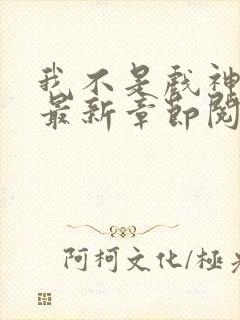 我不是戲神
最新章節閱
阿柯文化/極光